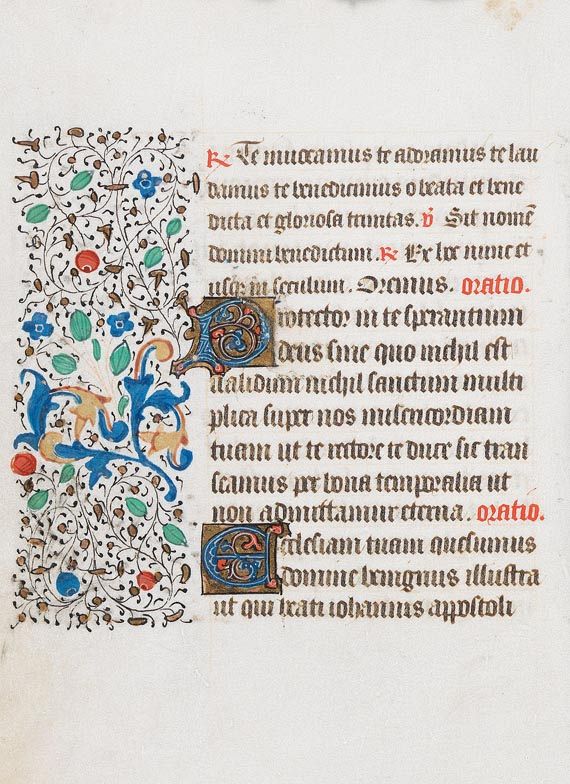 R Te invocamus te adoramus te lau
damus te benedicimus o beata et bene
dicta et gloriosa trinitas. v Sit nomē
domini benedictum. R Ex hoc nunc et
usq; in seculum. Oremus. oratio.
Protector in te sperantium
deus sine quo nichil est
ualidum nichil sanctum multi
plica super nos misericordiam
tuam ut te rectore te duce sic tran
seamus per bona temporalia ut
non admittamus eterna. oratio.
Ecclesiam tuam quesumus
domine benignus illustra
ut qui beati iohannis appostoli